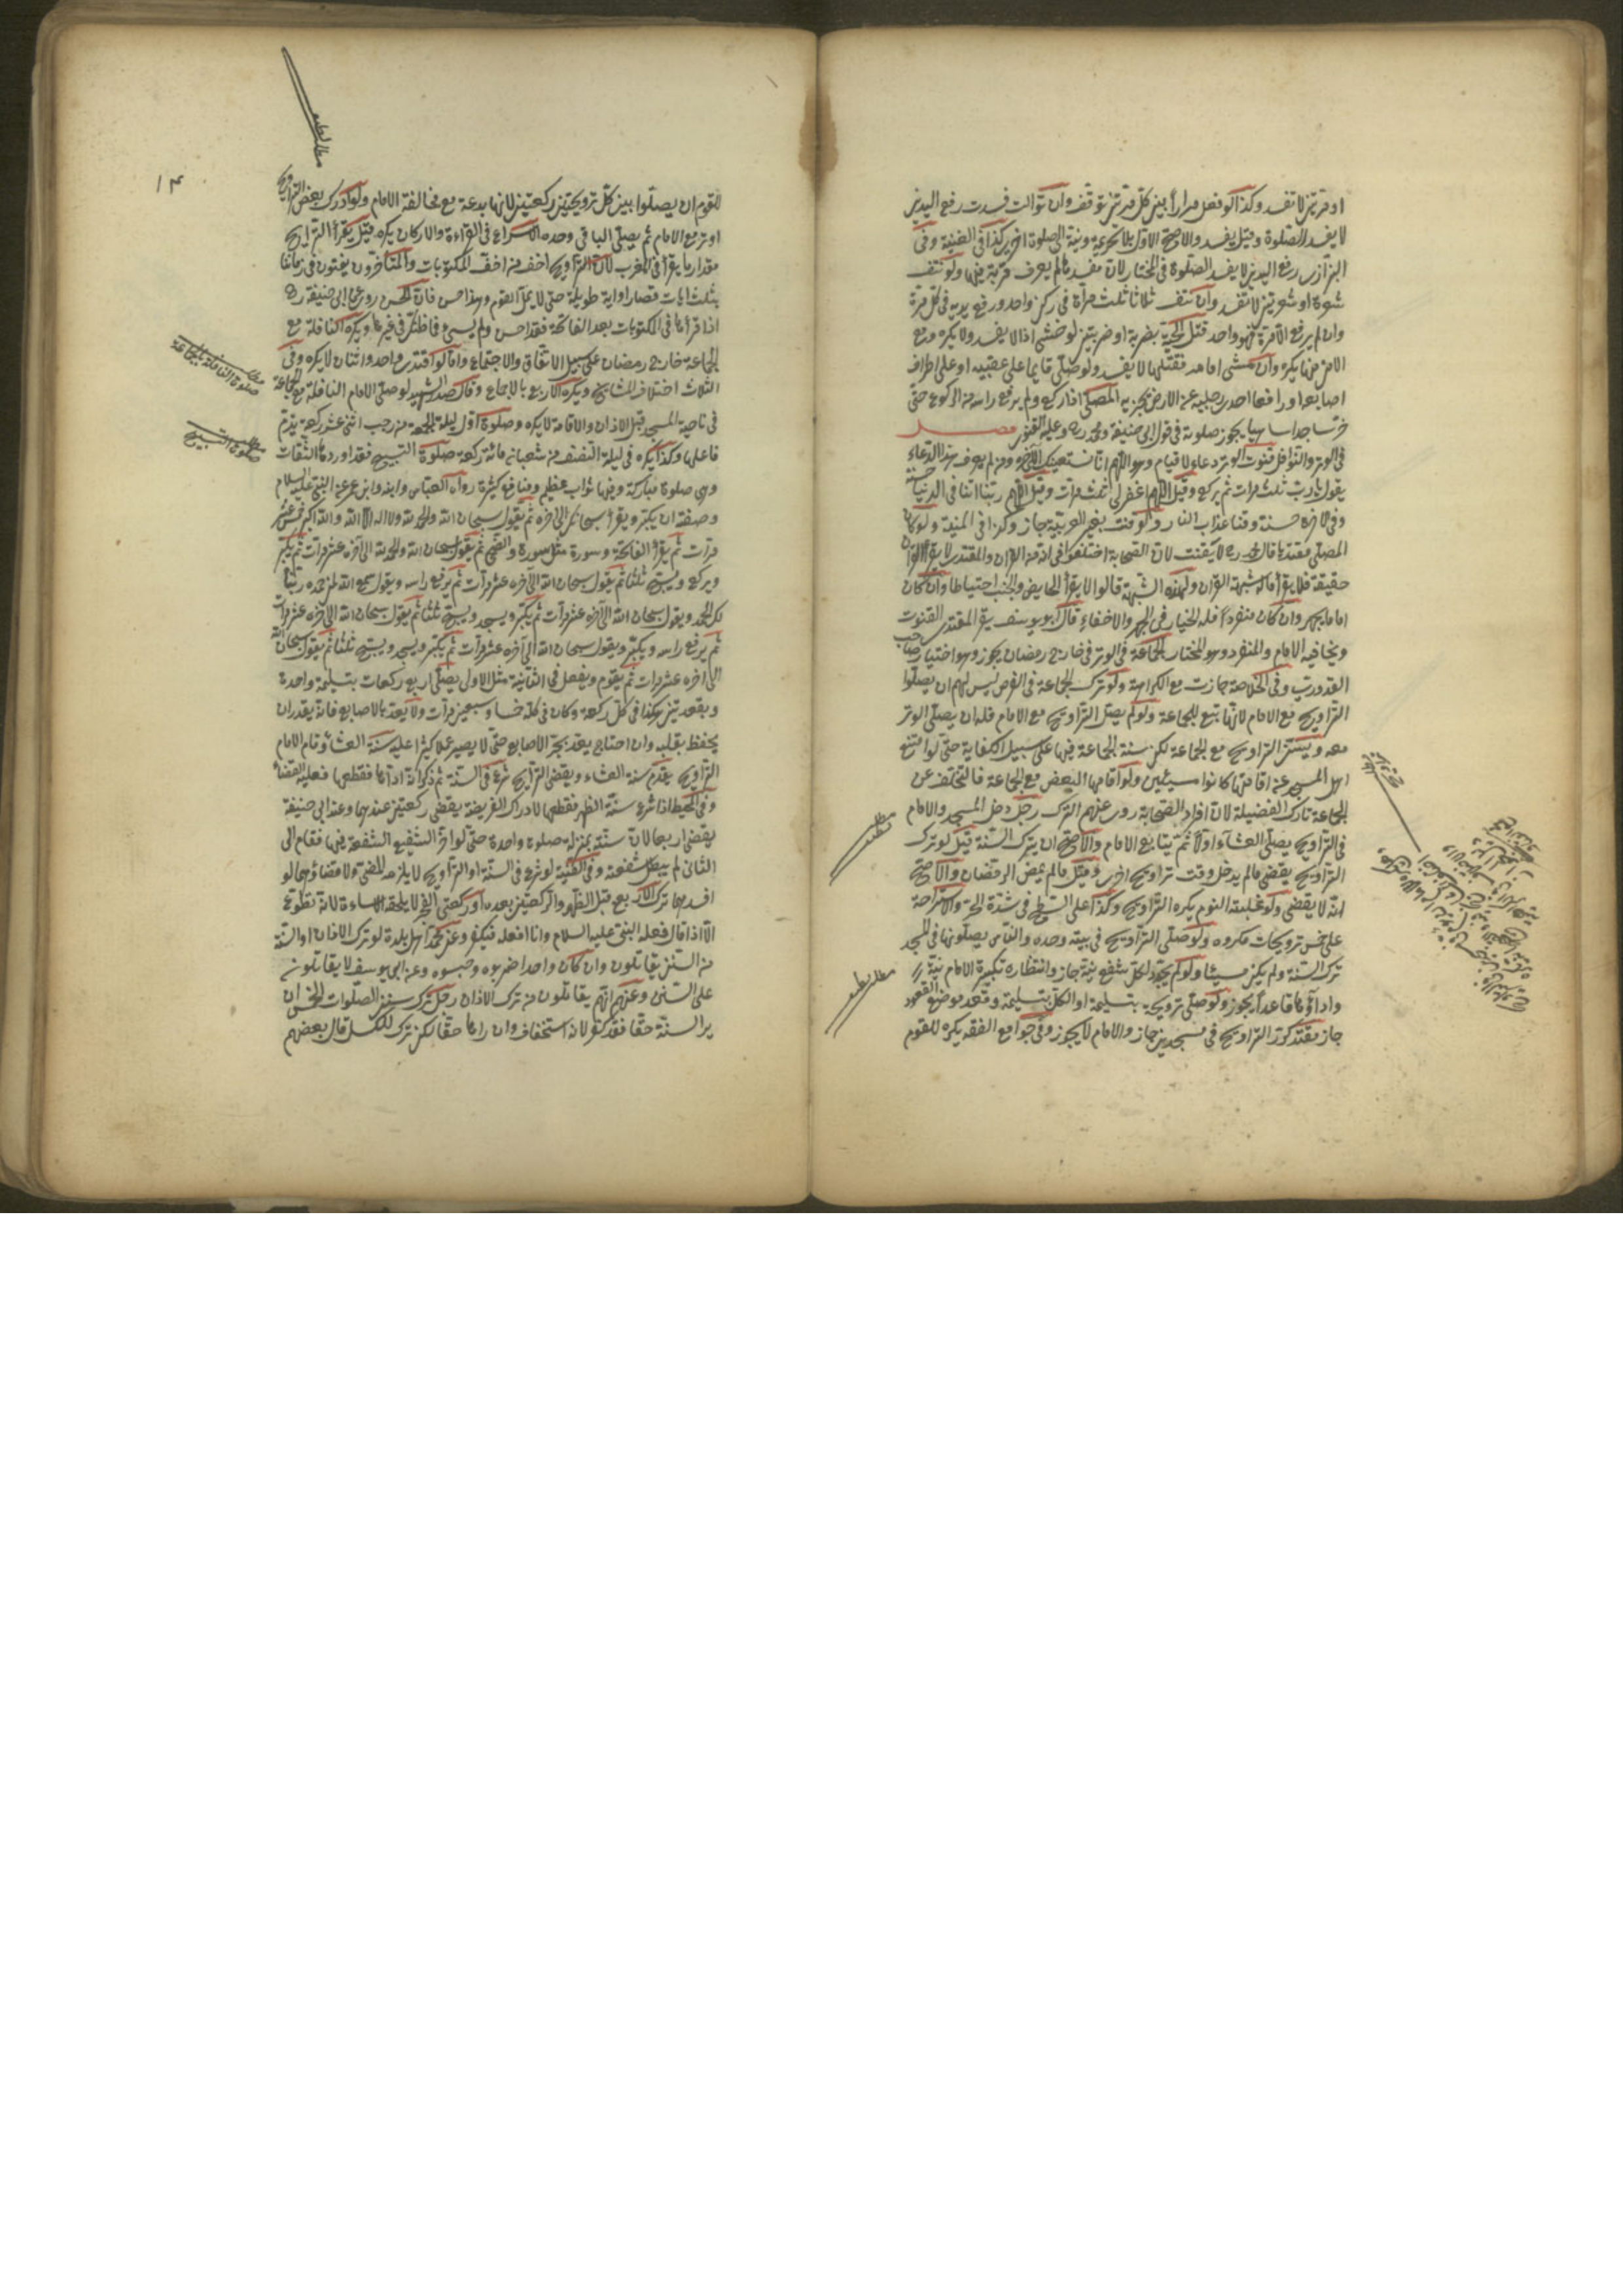 او مرتين لا تفسد وكذا لو فعل مرارا بين كل مرتين توقف وان توالت فسدت رفع اليدين
لا يفسد الصلوة وقيل يفسد والاصح الاول بلا تحريمة ونية الى الصلوة اخرى كذا في الغنية وفي
البزازى رفع اليدين لا يفسد الصلوة في المختار لان مفسدها لم يعرف قربة فيها ولو نتف
شعرة او شعرتين لا تفسد وان نتف ثلاثا ثلث مرات في ركن واحد ورفع يديه في كل مرة
وان لم يرفع الا مرة فهو واحد قتل الحية بضربة او ضربتين لو خشى اذا لا يفسد ولا يكره ومع
الامن منها يكره وان مشى امامه فقتلها لا يفسد ولو صلى قايما على عقبيه او على اطراف
اصابعه او رافعا احدى رجليه عن الارض يجزيه المصلى اذا ركع ولم يرفع راسه من الركوع حتى
خر ساجدا ساهيا يجوز صلوته في قول ابى حنيفة ومحمد رح وعليه الفتوى فصل
في الوتر والنوافل قنوت الوتر دعاء لا قيام وهو اللهم انا نستعينك الى آخره ومن لم يعرف هذا الدعاء
يقول يا رب ثلث مرات ثم يركع وقيل اللهم اغفر لى ثلث مرات وقيل اللهم ربنا اتنا في الدنيا حسنة
وفي الاخرة حسنة وقنا عذاب النار ولو قنت بغير العربية جاز وكذا في المنية ولو كان
المصلى مقتديا قال محمد رح لا يقنت لان الصحابة اختلفوا في انه من القرآن والمقتدى لا يقرأ القرآن
حقيقة فلا يقرأ ماله شبهة القرآن ولهذه الشبهة قالوا لا يقرأ الحايض والجنب احتياطا وان كان
اماما يجهر وان كان منفردا فله الخيار في الجهر والاخفاء قال ابو يوسف يقرأ المقتدى القنوت
ويخافيه الامام والمنفرد وهو المختار الجماعة في الوتر في خارج رمضان يجوز وهو اختيار صاحب
القدورى وفي الخلاصة جازت مع الكراهة ولو ترك الجماعة في الفرض ليس لهم ان يصلوا
التراويح مع الامام لانها تبع للجماعة ولو لم يصل التراويح مع الامام فله ان يصلى الوتر
معه ويسن التراويح مع الجماعة لكن سنة الجماعة فيها على سبيل الكفاية حتى لو امتنع
اهل المسجد عن اقامتها كانوا مسيئين ولو اقامها البعض مع الجماعة فالتخلف عن
الجماعة تارك الفضيلة لان افراد الصحابة روى عنهم الترك رجل دخل المسجد والامام
في التراويح يصلى العشاء اولا ثم يتابع الامام والاصح ان يترك السنة قيل لو ترك
التراويح يقضى ما لم يدخل وقت تراويح اخرى وقيل ما لم يمض الرمضان والاصح
انه لا يقضى ولو غلبته النوم يكره التراويح وكذا على السطح في شدة الحر والاستراحة
على خمس ترويحات مكروه ولو صلى التراويح في بيته وحده والناس يصلونها في المسجد
ترك السنة ولم يكن مسيئا ولو لم يجدد لكل شفع نية جاز وانتظاره تكبيرة الامام نية
واداؤها قاعدا يجوز ولو صلى ترويحة بتسليمة او الكل بتسليمة وقعد موضع القعود
جاز مقتد كرر التراويح في مسجدين جاز والامام لا يجوز وفي جوامع الفقه يكره للقوم
مطلب
مطلب
١٤
للقوم ان يصلوا بين كل ترويحتين ركعتين لانها بدعة مع مخالفة الامام ولو ادرك بعض التراويح
اوتر مع الامام ثم يصلى الباقى وحده الاسراع في القراءة والاركان يكره قيل يقرأ التراويح
مقدار ما يقرأ في المغرب لان التراويح اخف من اخف المكتوبات والمتأخرون يفتون في زماننا
بثلث ايات قصار او اية طويلة حتى لا يمل القوم وهذا حسن فان الحسن روى عن ابى حنيفة رح
اذا قرأها في المكتوبات بعد الفاتحة فقد احسن ولم يسئ فما ظنك في غيرها ويكره النافلة مع
الجماعة خارج رمضان على سبيل الاتفاق والاجتماع واما لو اقتدى واحد واثنان لا يكره وفي
الثلاث اختلاف المشايخ ويكره الاربع بالاجماع وقال صدر الشهيد لو صلى الامام النافلة مع الجماعة
في ناحية المسجد قبل الاذان والاقامة لا يكره وصلوة اول ليلة الجمعة من رجب اثنى عشر ركعة يذم
فاعلها وكذا يكره في ليلة النصف من شعبان مائة ركعة صلوة التسبيح فقد اوردها الثقات
وهى صلوة مباركة وفيها ثواب عظيم ومنافع كثيرة رواه العباس وابنه وابن عمر عن النبى عليه السلام
وصفته ان يكبر ويقرأ سبحانك الى اخره ثم يقول سبحان الله والحمد لله ولا اله الا الله والله اكبر خمس عشر
مرات ثم يقرأ الفاتحة وسورة مثل سورة والضحى ثم يقول سبحان الله والحمد لله الى آخره عشر مرات ثم يكبر
ويركع ويسبح ثلثا ثم يقول سبحان الله الى آخره عشر مرات ثم يرفع راسه ويقول سمع الله لمن حمده ربنا
لك الحمد ويقول سبحان الله الى آخره عشر مرات ثم يكبر ويسجد ويسبح ثلثا ثم يقول سبحان الله الى آخره عشر مرات
ثم يرفع راسه ويكبر ويقول سبحان الله الى آخره عشر مرات ثم يكبر ويسجد ويسبح ثلثا ثم يقول سبحان الله
الى اخره عشر مرات ثم يقوم ويفعل في الثانية مثل الاولى يصلى اربع ركعات بتسليمة واحدة
وبقعدتين هكذا في كل ركعة وكان في كله خمسا وسبعين مرات ولا يعد بالاصابع فانه يقدر ان
يحفظ بقلبه وان احتاج يعد بجر الاصابع حتى لا يصير عملا كثيرا عليه سنة العشاء وقام الامام
التراويح يقدم سنة العشاء ويقضى التراويح شرع في السنة ثم ذكر انه اداها فقطعها فعليه القضاء
وفي المحيط اذا شرع سنة الظهر فقطعها لادراك الفريضة يقضى ركعتين عندهما وعند ابى حنيفة
يقضى اربعا لان سنته بمنزلة صلوة واحدة حتى لو اخر الشفيع الشفعة فيها فقام الى
الثانى لم يبطل شفعته وفي القنية لو شرع في السنة او التراويح لا يلزمه المضى ولا قضاؤهما لو
افسدهما ترك الاربع قبل الظهر والركعتين بعده او ركعتى الفجر لا يلحقه الاساءة لانه تطوع
الا اذا قال فعله النبى عليه السلام وانا افعله فيكفر وعن محمد اهل بلدة لو ترك الاذان او السنة
من السنن يقاتلون وان كان واحدا ضربوه وحبسوه وعند ابى يوسف لا يقاتلون
على السنن وعنهم انهم يقاتلون من ترك الاذان رجل ترك سنن الصلوات الخمس ان
ير السنة حقا فقد كفر لانه استخفاف وان راها حقا لكن ترك للكسل قال بعضهم
مطلب
صلوة النافلة بالجماعة
مطلب
صلوة التسبيح